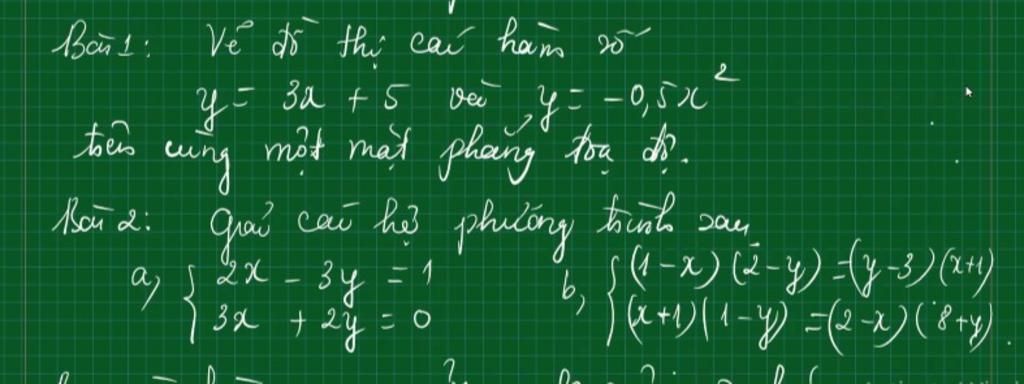 Bài 1: Vẽ đồ thị các hàm số
y = 3x + 5 và y = -0,5x²
trên cùng một mặt phẳng tọa độ.
Bài 2: Giải các hệ phương trình sau
a, { 2x - 3y = 1
3x + 2y = 0
b, { (1-x)(2-y) = (y-3)(x+1)
(x+1)(1-y) = (2-x)(8+y).